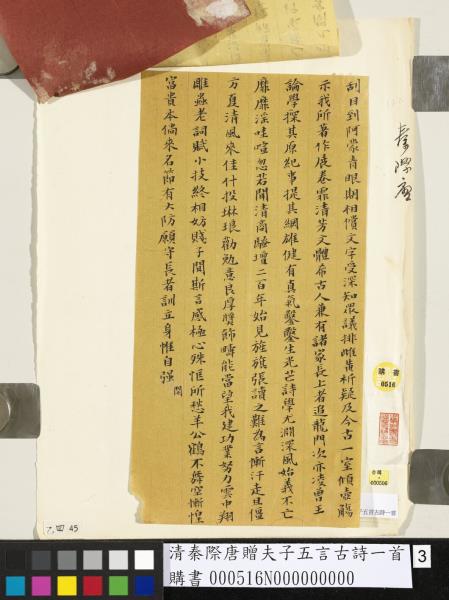 刮目到阿蒙青眼期相償文字受深知眾議排雌黃析疑及今古一室傾壺觴
示我所著作展卷霏清芳文體希古人兼有諸家長上者追龍門次亦凌曹王
論學探其原紀事提其綱雄健有真氣鑿鑿生光芒詩學尤淵深風始義不亡
靡靡淫哇喧忽若聞清商騷壇二百年始見旌旗張讀之難為言慚汗走且僵
方夏清風來佳什投琳琅勸勉意良厚贗飾疇能當望我建功業努力雲中翔
雕蟲老詞賦小技終相妨賤子聞斯言感極心殊恇所愁羊公鶴不舞空慚惶
富貴本倘來名節有大防願守長者訓立身惟自强
秦際唐
購書
0516
購書
000506
七.四 45
清秦際唐贈夫子五言古詩一首
購書 000516N000000000
3